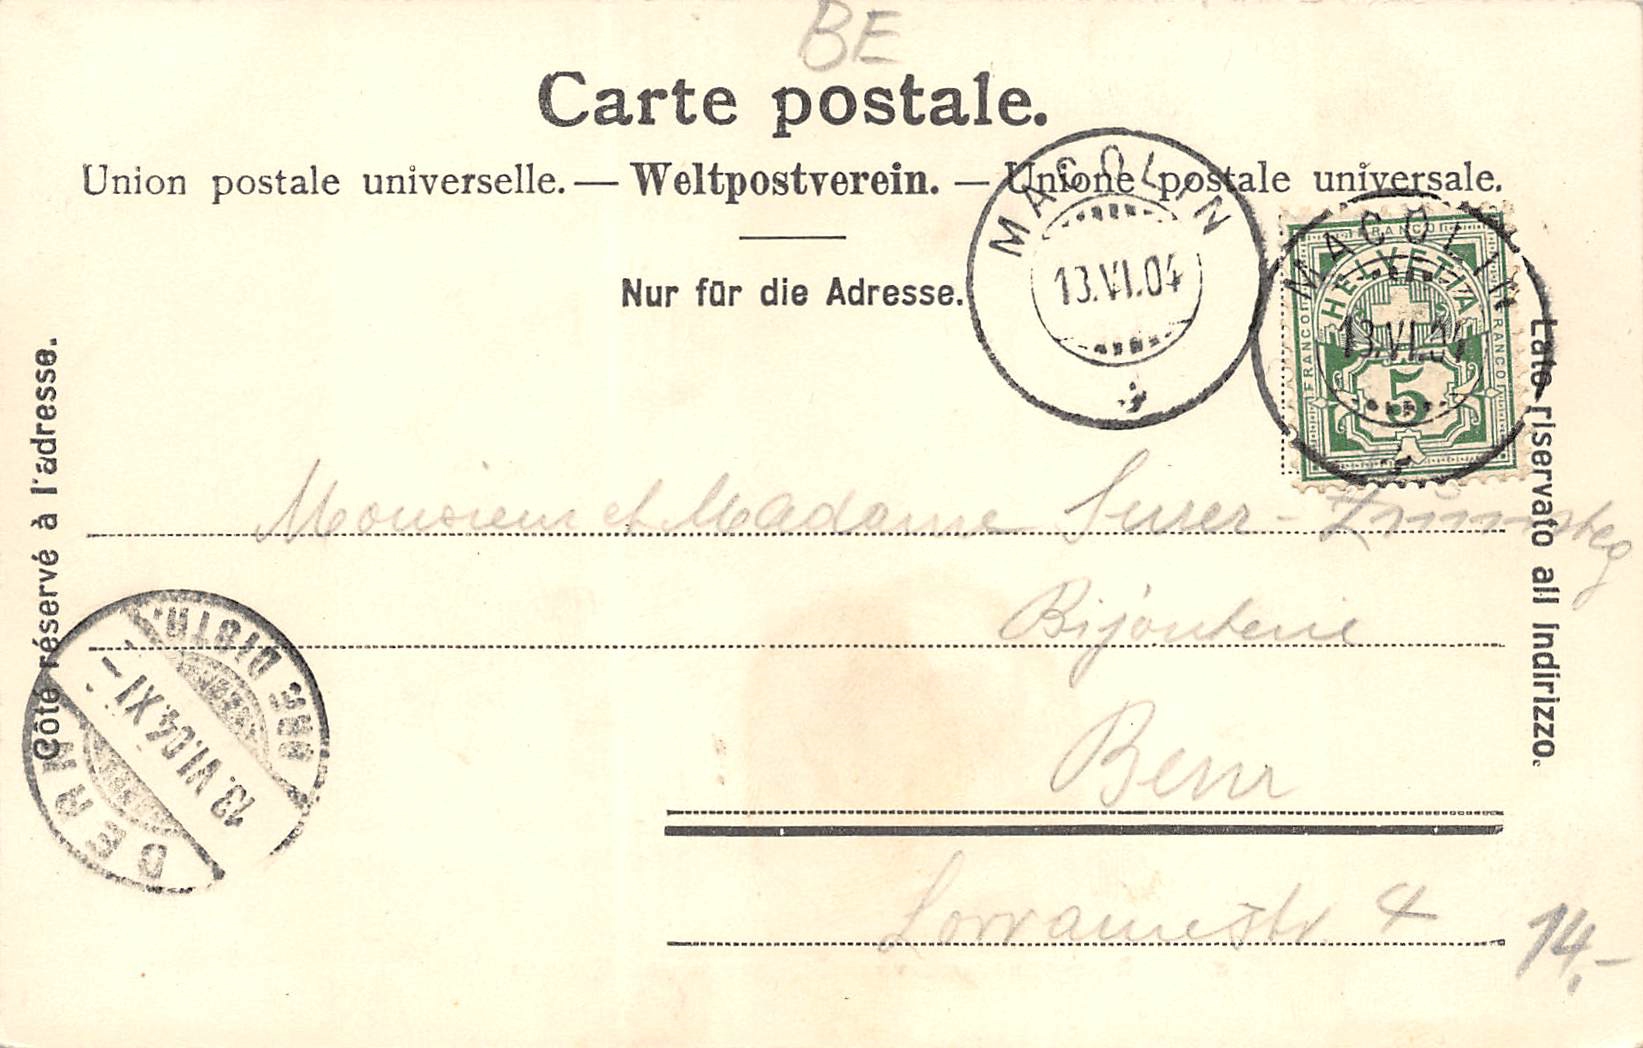 BE
Carte postale.
Union postale universelle. — Weltpostverein. — Unione postale universale.
Nur für die Adresse.
MACOLIN
13.VI.04
MACOLIN
13.VI.04
FRANCO
HELVETIA
FRANCO
FRANCO
5
Côté réservé à l'adresse.
Lato riservato all Indirizzo.
Monsieur et Madame Suser-
Bijouterie
Bern
Lorrainestr. 4
BERN
13.VI.04.XI-
BRF. DISTR.
14.-